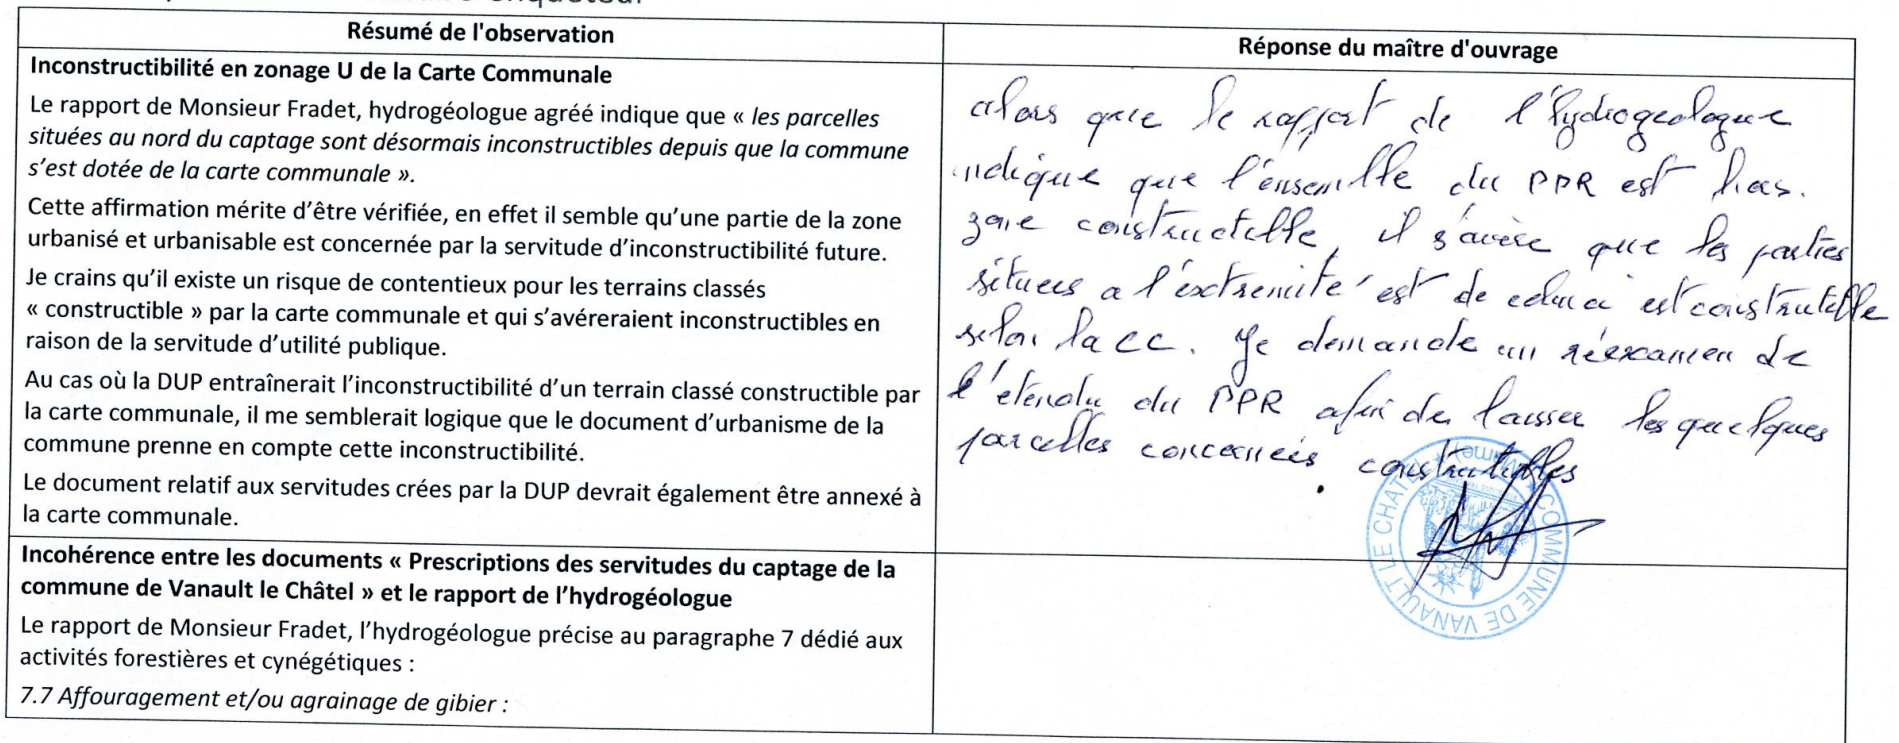 Résumé de l'observation
Réponse du maître d'ouvrage
Inconstructibilité en zonage U de la Carte Communale
Le rapport de Monsieur Fradet, hydrogéologue agréé indique que « les parcelles
situées au nord du captage sont désormais inconstructibles depuis que la commune
s'est dotée de la carte communale ».
Cette affirmation mérite d'être vérifiée, en effet il semble qu'une partie de la zone
urbanisé et urbanisable est concernée par la servitude d'inconstructibilité future.
Je crains qu'il existe un risque de contentieux pour les terrains classés
« constructible » par la carte communale et qui s'avéreraient inconstructibles en
raison de la servitude d'utilité publique.
Au cas où la DUP entraînerait l'inconstructibilité d'un terrain classé constructible par
la carte communale, il me semblerait logique que le document d'urbanisme de la
commune prenne en compte cette inconstructibilité.
Le document relatif aux servitudes crées par la DUP devrait également être annexé à
la carte communale.
alors que le rapport de l'hydrogeologue
indique que l'ensemble du PPR est hors.
zone constructible, il s'avère que les parties
situees a l'extremité est de celui ci est constructible
selon la CC. Je demande un réexamen de
l'etendu du PPR afin de laisser les quelques
parcelles concernées constructibles.
COMMUNE DE VANAULT LE CHATEL (Marne)
Incohérence entre les documents « Prescriptions des servitudes du captage de la
commune de Vanault le Châtel » et le rapport de l'hydrogéologue
Le rapport de Monsieur Fradet, l'hydrogéologue précise au paragraphe 7 dédié aux
activités forestières et cynégétiques :
7.7 Affouragement et/ou agrainage de gibier :